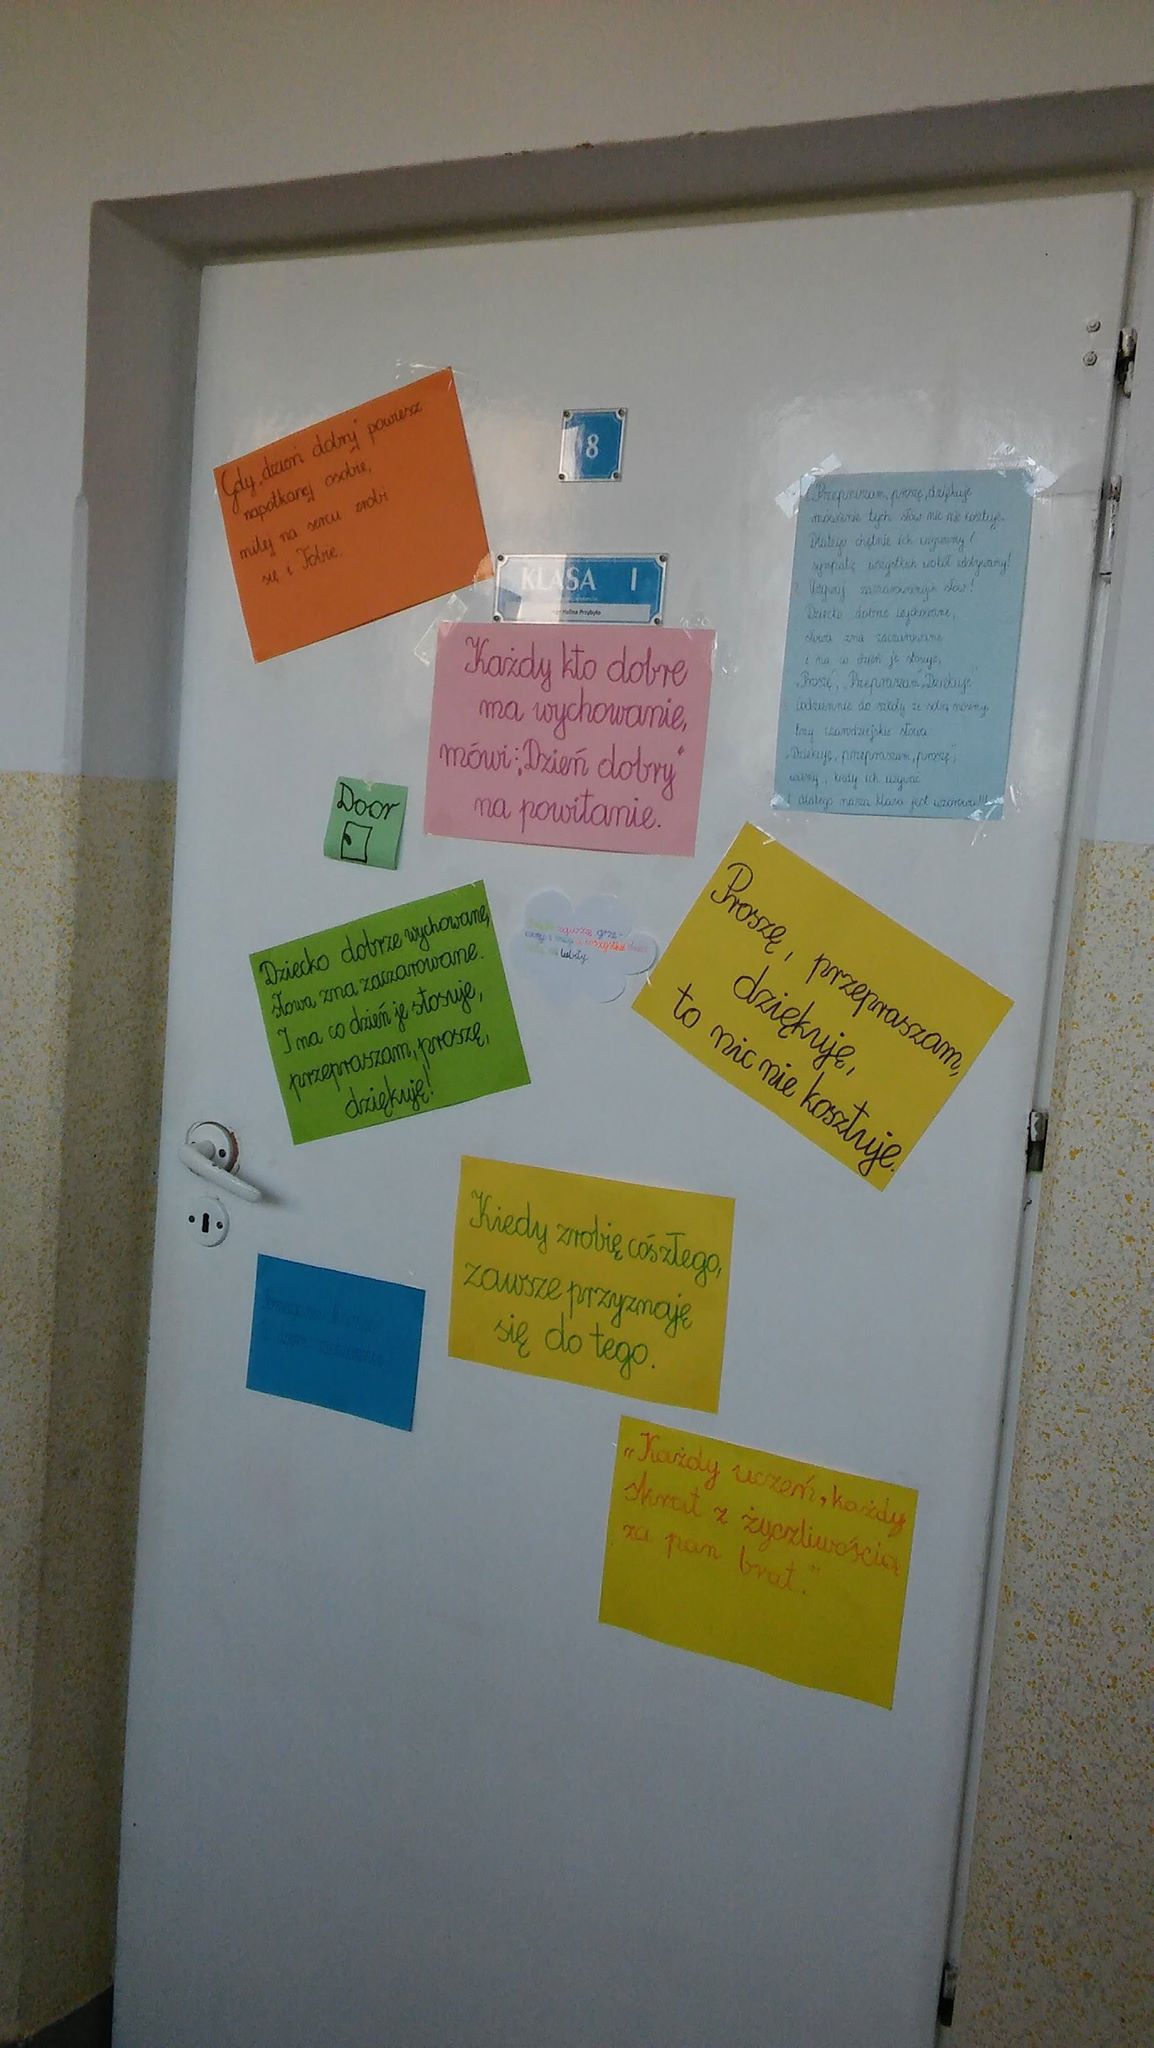 8
KLASA I
mgr Halina Przybyło
Gdy „dzień dobry" powiesz
napotkanej osobie,
miłej na sercu zrobi
się i Tobie.
Każdy kto dobre
ma wychowanie,
mówi: „Dzień dobry"
na powitanie.
Przepraszam, proszę, dziękuję
mówienie tych słów nic nie kosztuje.
Dlatego chętnie ich używamy i
sympatię wszystkich wokół zdobywamy!
Używaj zaczarowanych słów!
Dziecko dobrze wychowane,
słowa zna zaczarowane
i na co dzień je stosuje,
„Proszę", „Przepraszam", „Dziękuję".
Codziennie do szkoły ze sobą nosimy,
trzy czarodziejskie słowa
„Dziękuję, przepraszam, proszę",
wiemy, kiedy ich używać
i dlatego nasza klasa jest wzorowa!!!
Door
Dziecko dobrze wychowane,
słowa zna zaczarowane.
I na co dzień je stosuje,
przepraszam, proszę,
dziękuję!
Proszę, przepraszam,
dziękuję,
to nic nie kosztuje.
Kiedy zrobię cóś złego,
zawsze przyznaję
się do tego.
„Każdy uczeń, każdy
skrat z życzliwością
za pan brat."